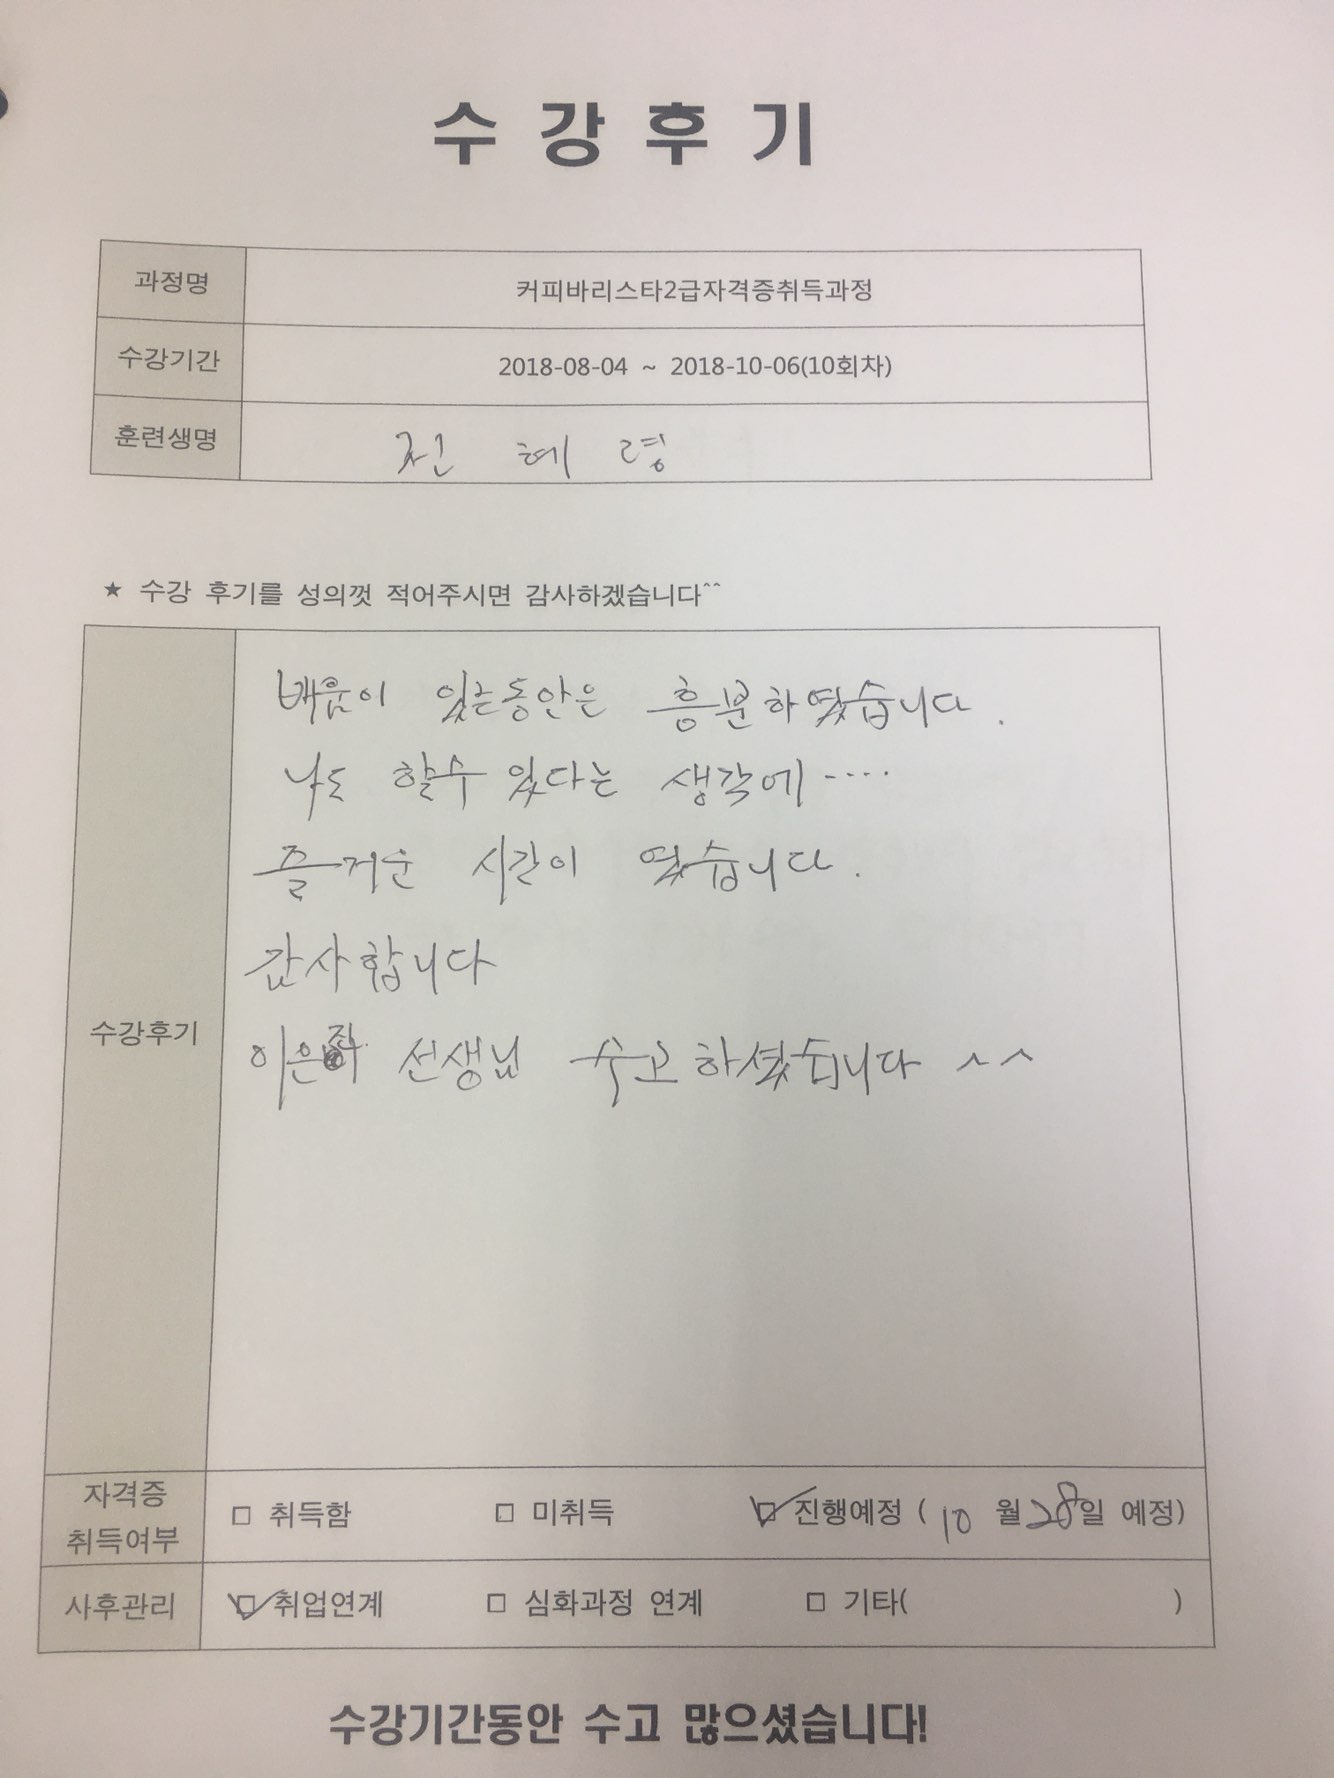 수 강 후 기
과정명 커피바리스타2급자격증취득과정
수강기간 2018-08-04 ~ 2018-10-06(10회차)
훈련생명 전 혜 령
★ 수강 후기를 성의껏 적어주시면 감사하겠습니다^^
배움이 있는동안은 흥분하였습니다.
나도 할수 있다는 생각에....
즐거운 시간이 였습니다.
감사합니다
수강후기
선생님 수고하셨습니다 ^^
자격증 취득여부 □ 취득함 □ 미취득 ☑ 진행예정 ( 10 월 28일 예정)
사후관리 ☑ 취업연계 □ 심화과정 연계 □ 기타( )
수강기간동안 수고 많으셨습니다!